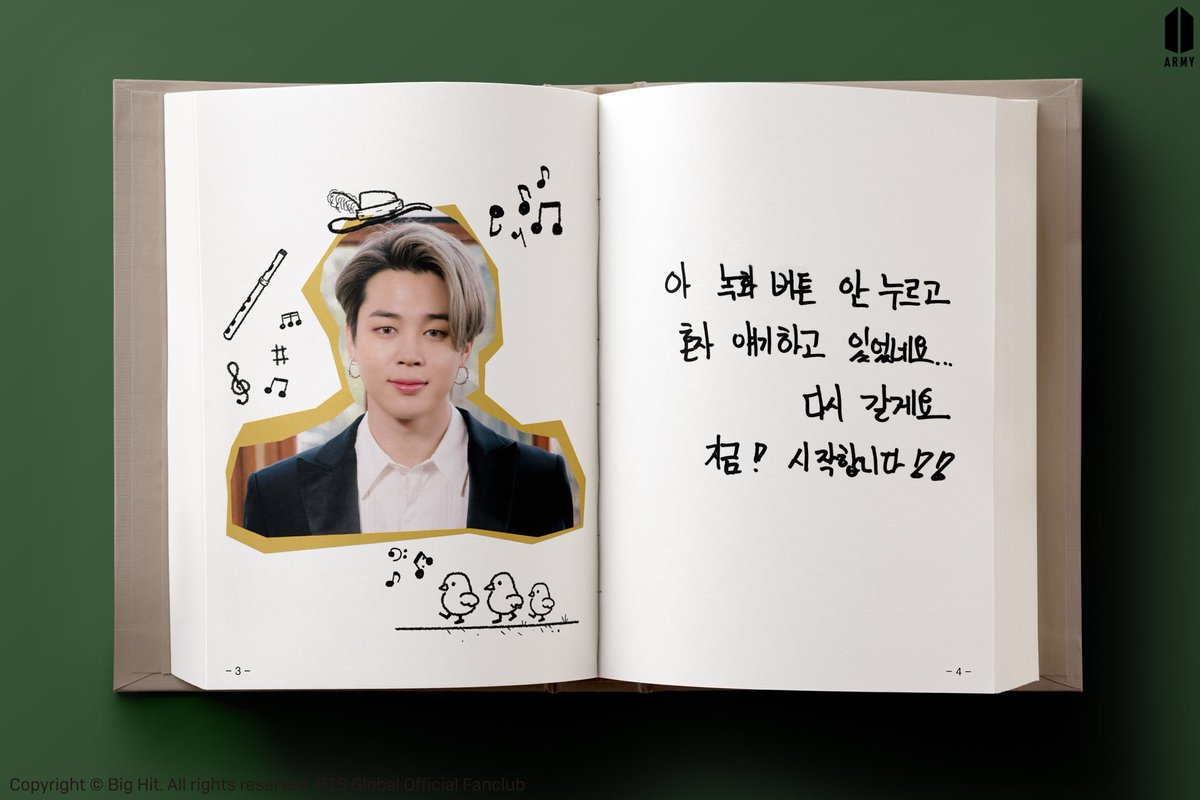 ARMY
아 녹화 버튼 안 누르고
혼자 얘기하고 있었네요...
다시 갈게요
지금! 시작합니다!!
- 3 -
- 4 -
Copyright © Big Hit. All rights reserved. BTS Global Official Fanclub